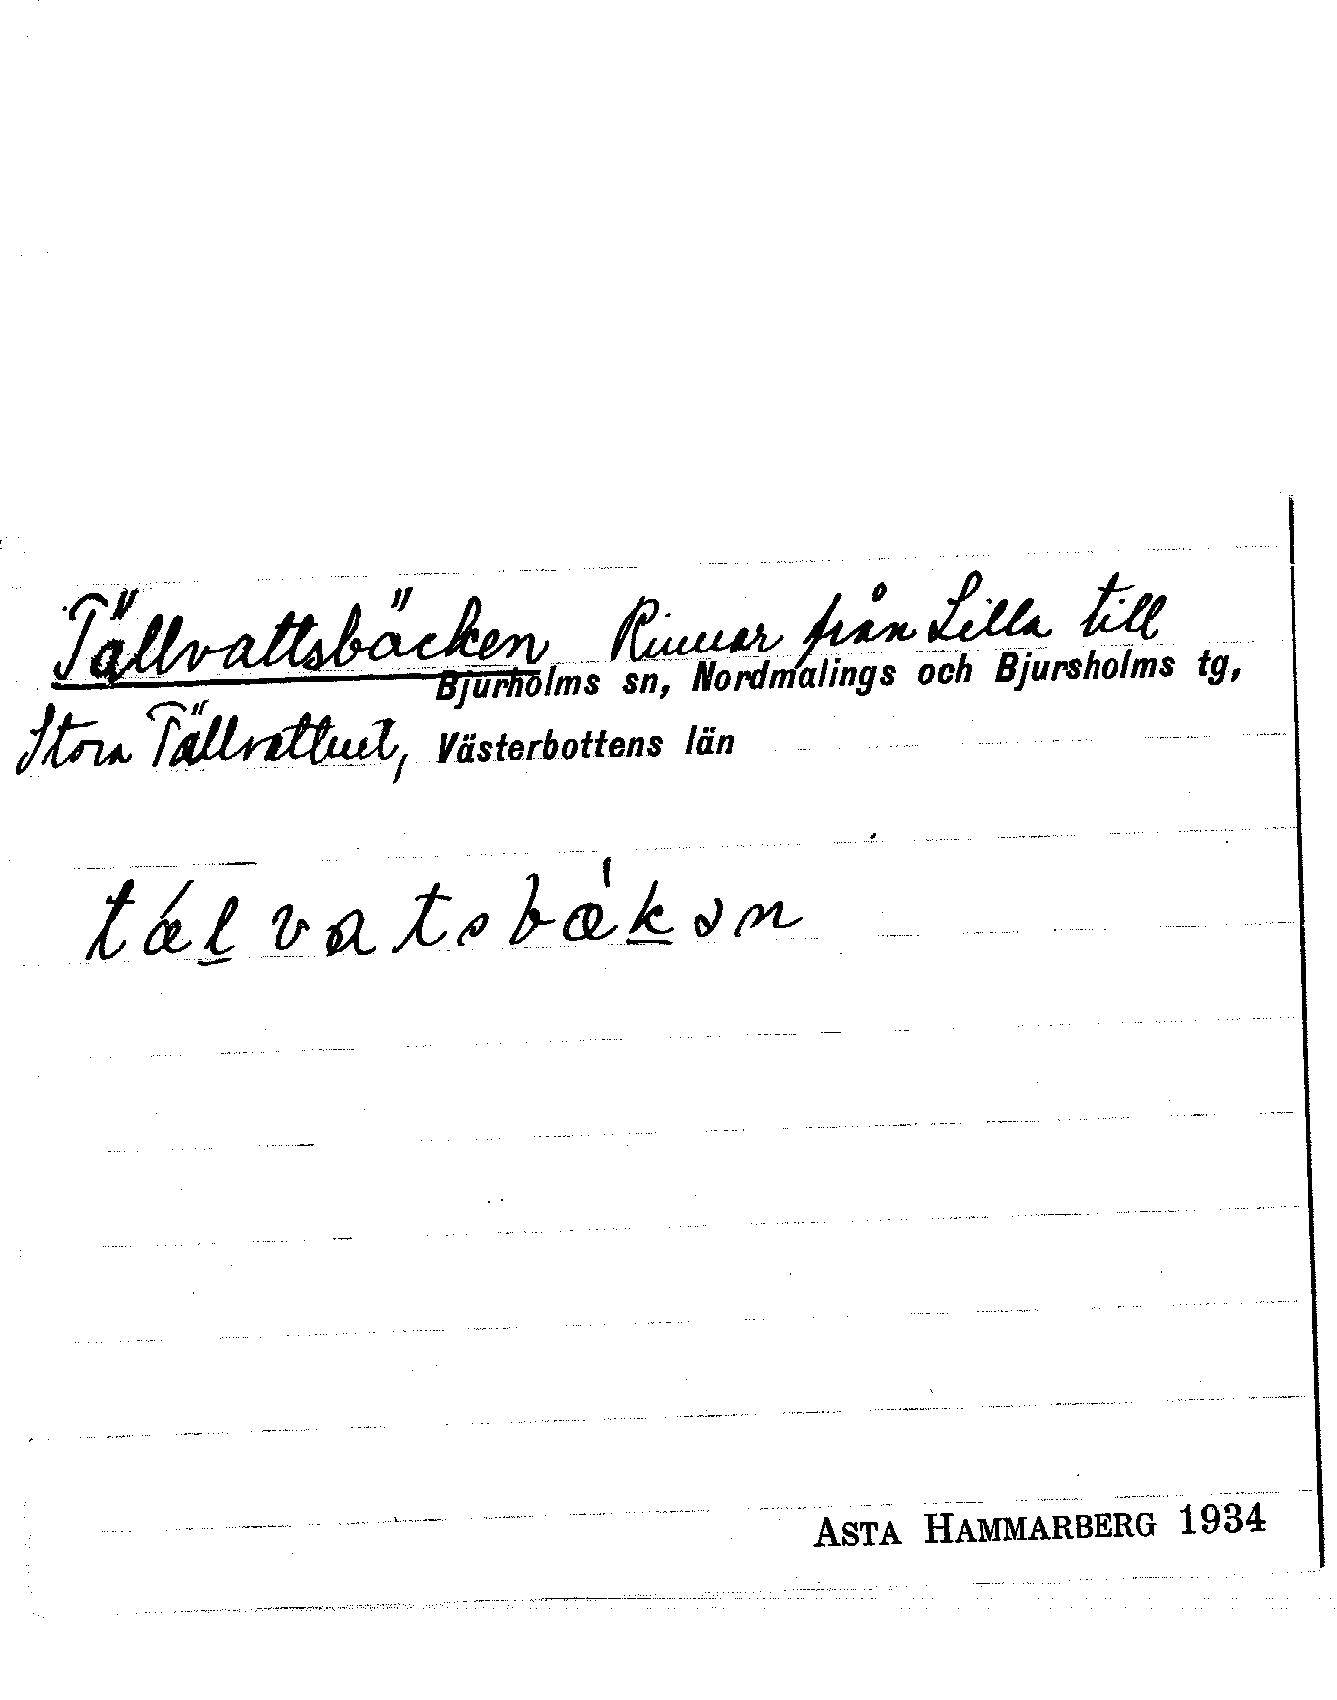 Tällvattsbäcken Rinner från Lilla till
Bjurholms sn, Nordmalings och Bjursholms tg,
Stora Tällvattnet, Västerbottens län
tǽl̲vatsbæ̍k̲ən
ASTA HAMMARBERG 1934